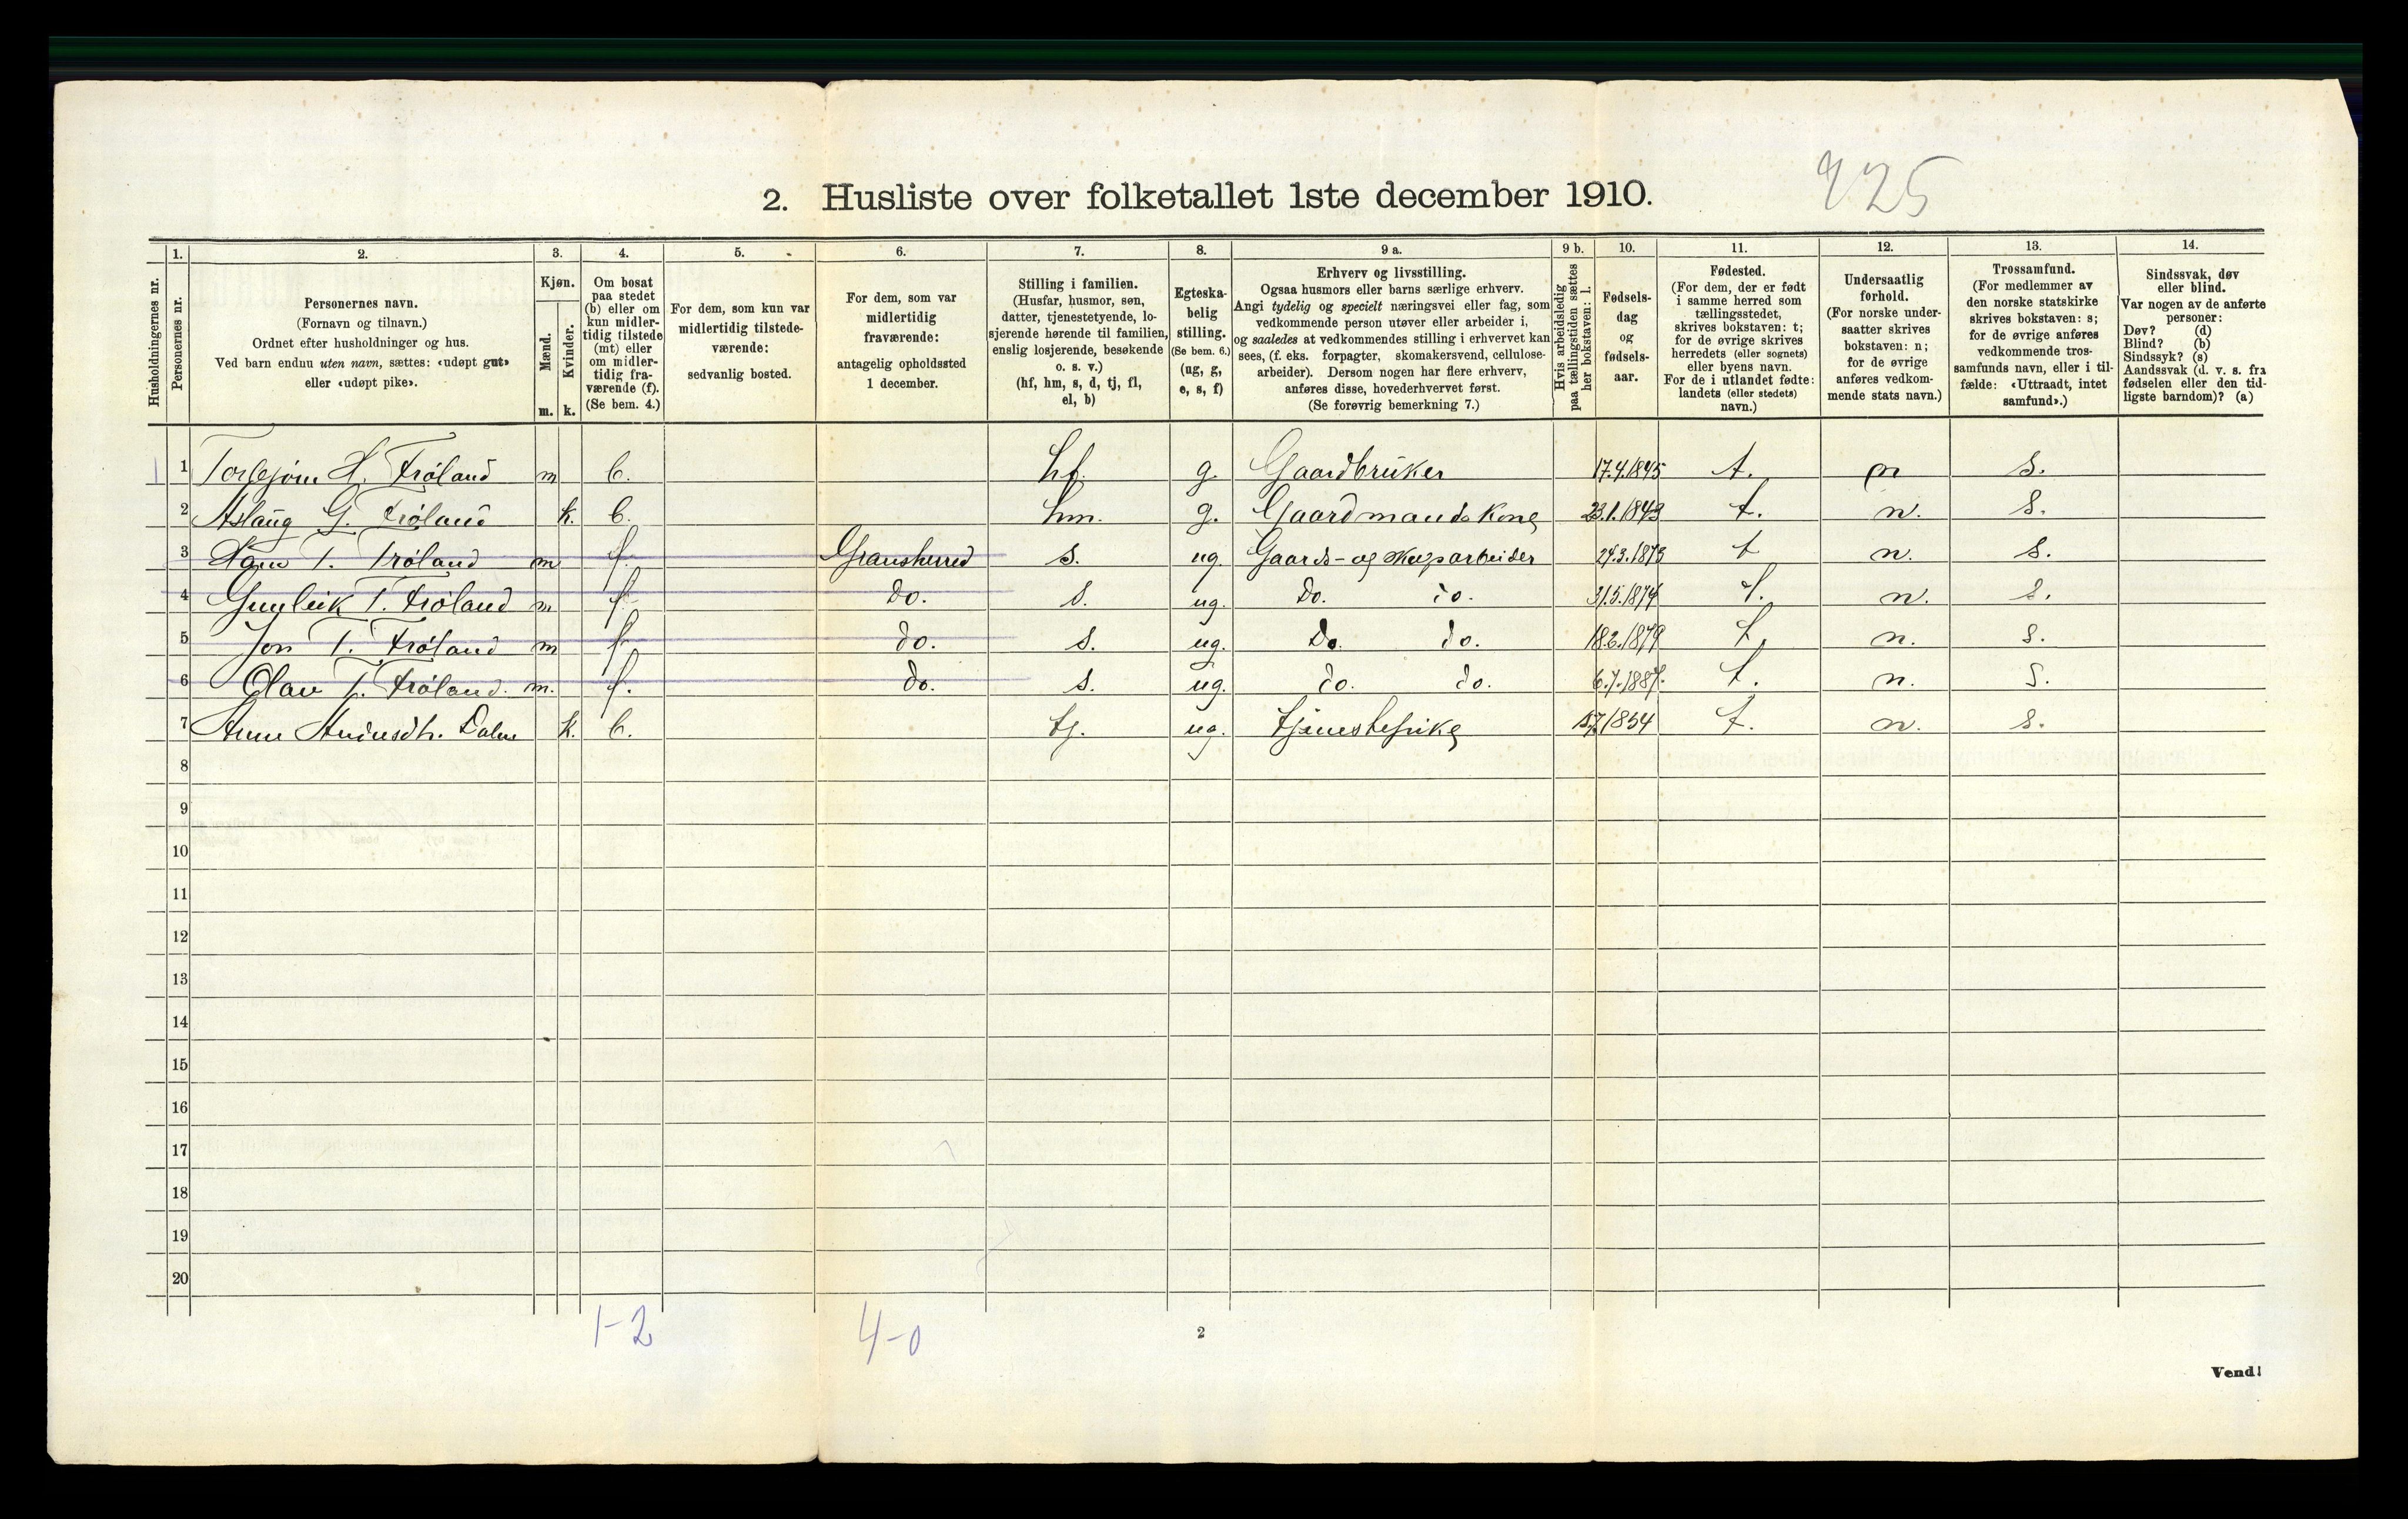 2. Husliste over folketallet 1ste december 1910.
225
1. 2. 3. 4. 5. 6. 7. 8. 9 a. 9 b. 10. 11. 12. 13. 14.
Husholdningernes nr.
Personernes nr.
Personernes navn.
(Fornavn og tilnavn.)
Ordnet efter husholdninger og hus.
Ved barn endnu uten navn, sættes: «udøpt gut»
eller «udøpt pike».
Kjøn.
Mænd.
Kvinder.
m. k.
Om bosat
paa stedet
(b) eller om
kun midler-
tidig tilstede
(mt) eller
om midler-
tidig fra-
værende (f).
(Se bem. 4.)
For dem, som kun var
midlertidig tilstede-
værende:
sedvanlig bosted.
For dem, som var
midlertidig
fraværende:
antagelig opholdssted
1 december.
Stilling i familien.
(Husfar, husmor, søn,
datter, tjenestetyende, lo-
sjerende hørende til familien,
enslig losjerende, besøkende
o. s. v.)
(hf, hm, s, d, tj, fl,
el, b)
Egteska-
belig
stilling.
(Se bem. 6.)
(ug, g,
e, s, f)
Erhverv og livsstilling.
Ogsaa husmors eller barns særlige erhverv.
Angi tydelig og specielt næringsvei eller fag, som
vedkommende person utøver eller arbeider i,
og saaledes at vedkommendes stilling i erhvervet kan
sees, (f. eks. forpagter, skomakersvend, cellulose-
arbeider). Dersom nogen har flere erhverv,
anføres disse, hovederhvervet først.
(Se forøvrig bemerkning 7.)
Hvis arbeidsledig
paa tællingstiden sættes
her bokstaven: l.
Fødsels-
dag
og
fødsels-
aar.
Fødested.
(For dem, der er født
i samme herred som
tællingsstedet,
skrives bokstaven: t;
for de øvrige skrives
herredets (eller sognets)
eller byens navn.
For de i utlandet fødte:
landets (eller stedets)
navn.)
Undersaatlig
forhold.
(For norske under-
saatter skrives
bokstaven: n;
for de øvrige
anføres vedkom-
mende stats navn.)
Trossamfund.
(For medlemmer av
den norske statskirke
skrives bokstaven: s;
for de øvrige anføres
vedkommende tros-
samfunds navn, eller i til-
fælde: «Uttraadt, intet
samfund».)
Sindssvak, døv
eller blind.
Var nogen av de anførte
personer:
Døv? (d)
Blind? (b)
Sindssyk? (s)
Aandssvak (d. v. s. fra
fødselen eller den tid-
ligste barndom)? (a)
1 1 Torbjørn H. Frøland m b. hf. g. Gaardbruker 17.4.1845 t. n s.
2 Aslaug G. Frøland k. b. hm. g. Gaardmandskone 23.1.1843 t. n. s.
3 T. Frøland m f. Gransherred s. ug. Gaards- og 24.3.1873 t n. s.
4 Gunleik T. Frøland m f. Do. s. ug. Do. do. 31.5.1874 t. n. s.
5 Jon T. Frøland m f. do. s. ug. Do. do. 18.3.1879 t. n. s.
6 Olav T. Frøland. m. f. do. s. ug. do. do. 6.7.1887. t. n. s.
7 Anne k. b. tj. ug. Tjenestepike 1854 t. n. s.
8
9
10
11
12
13
14
15
16
17
18
19
20
1-2
4-0
2
Vend!